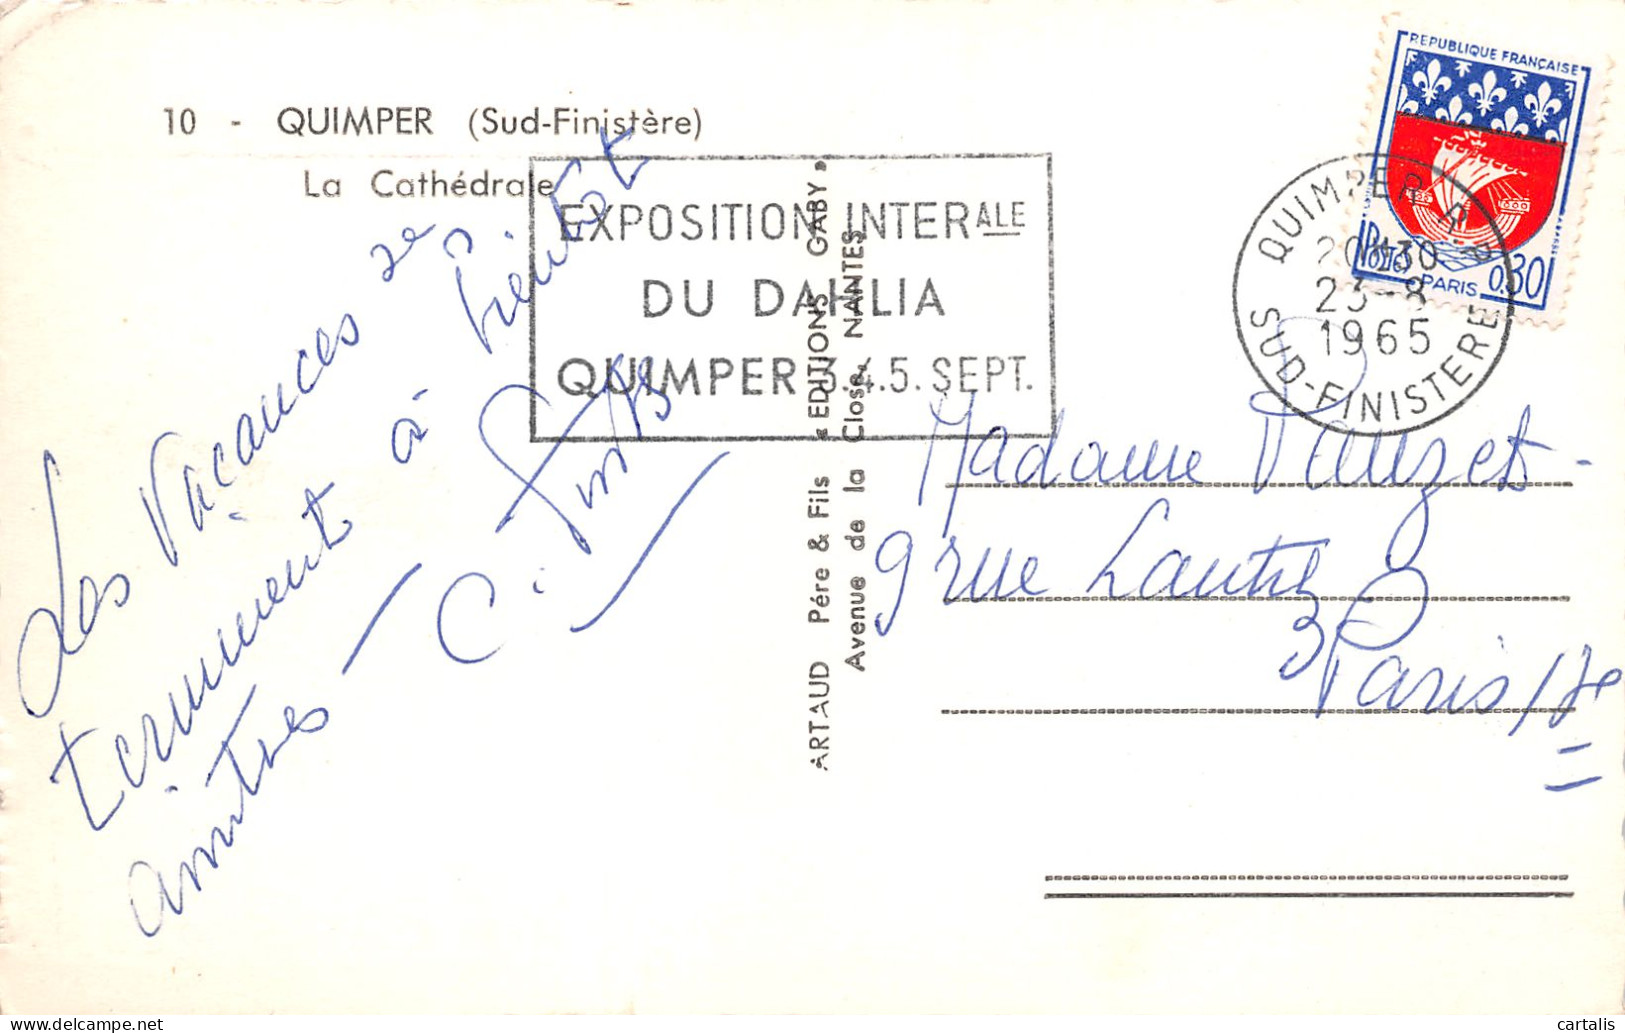 10 - QUIMPER (Sud-Finistère)
La Cathédrale
EXPOSITION INTERALE
DU DAHLIA
QUIMPER 3.4.5. SEPT.
REPUBLIQUE FRANÇAISE
Postes
PARIS
0.30
QUIMPER R.P.
20H30
23-8
1965
SUD-FINISTERE
Les Vacances se
terminent à
Bientôt
amitiés
C.
ARTAUD Pére & Fils « EDITIONS GABY »
Avenue de la Close, NANTES
Madame
9 rue
Paris 17e
cartalis